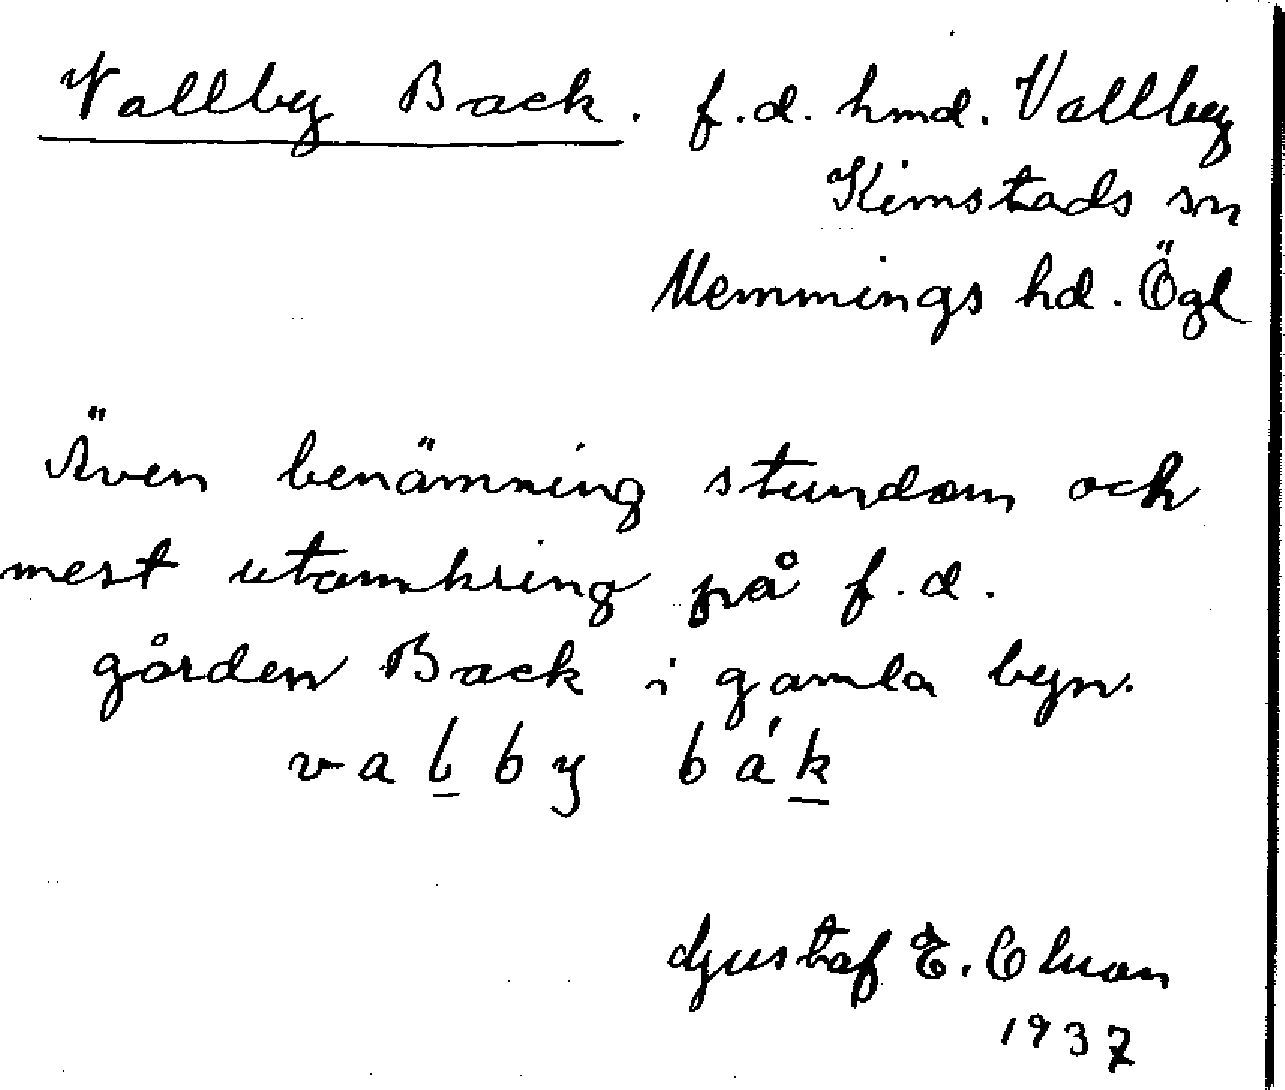 Vallby Back. f.d. hmd. Vallby
Kimstads sn
Memmings hd. Ögl
Även benämning stundom och
mest utomkring på f.d.
gården Back i gamla byn.
valby bák
Gustaf E.
1937